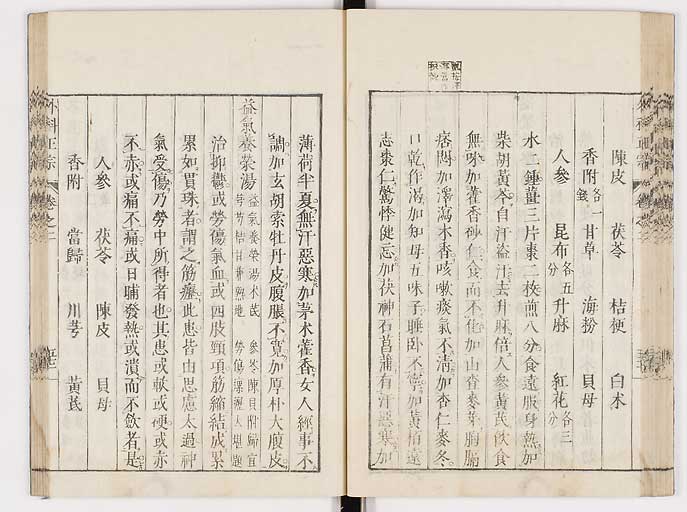 陳皮 茯苓 桔梗 白朮
香附各一錢 甘草 海粉 貝母
人參 昆布各五分 升麻 紅花各三分
水二鍾薑三片棗二枚煎八分食遠服身熱加
柴胡黃芩自汗盜汗去升麻倍人參黃芪飲食
無味加藿香砂仁食而不化加山查麥芽胸膈
痞悶加澤瀉木香咳嗽痰氣不清加杏仁麥冬
口乾作渴加知母五味子睡卧不寧加黃栢遠
志棗仁驚悸健忘加茯神石菖蒲有汗惡寒加
薄荷半夏無汗惡寒加茅朮藿香女人經事不
調加玄胡索牡丹皮腹脹不寬加厚朴大腹皮
益氣養榮湯 益氣養榮湯朮芪 參苓陳貝附歸宜 芎芍桔甘柴熟地 勞傷瘰癧大堪題
治抑鬱或勞傷氣血或四肢頸項筋縮結成累
累如貫珠者謂之筋癧此患皆由思慮太過神
氣受傷乃勞中所得者也其患或軟或硬或赤
不赤或痛不痛或日晡發熱或潰而不斂者是
人參 茯苓 陳皮 貝母
香附 當歸 川芎 黃芪
外科正宗 卷之二